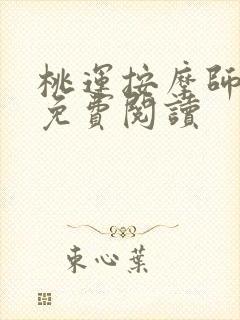 桃運按摩師
免費閱讀
束心葉